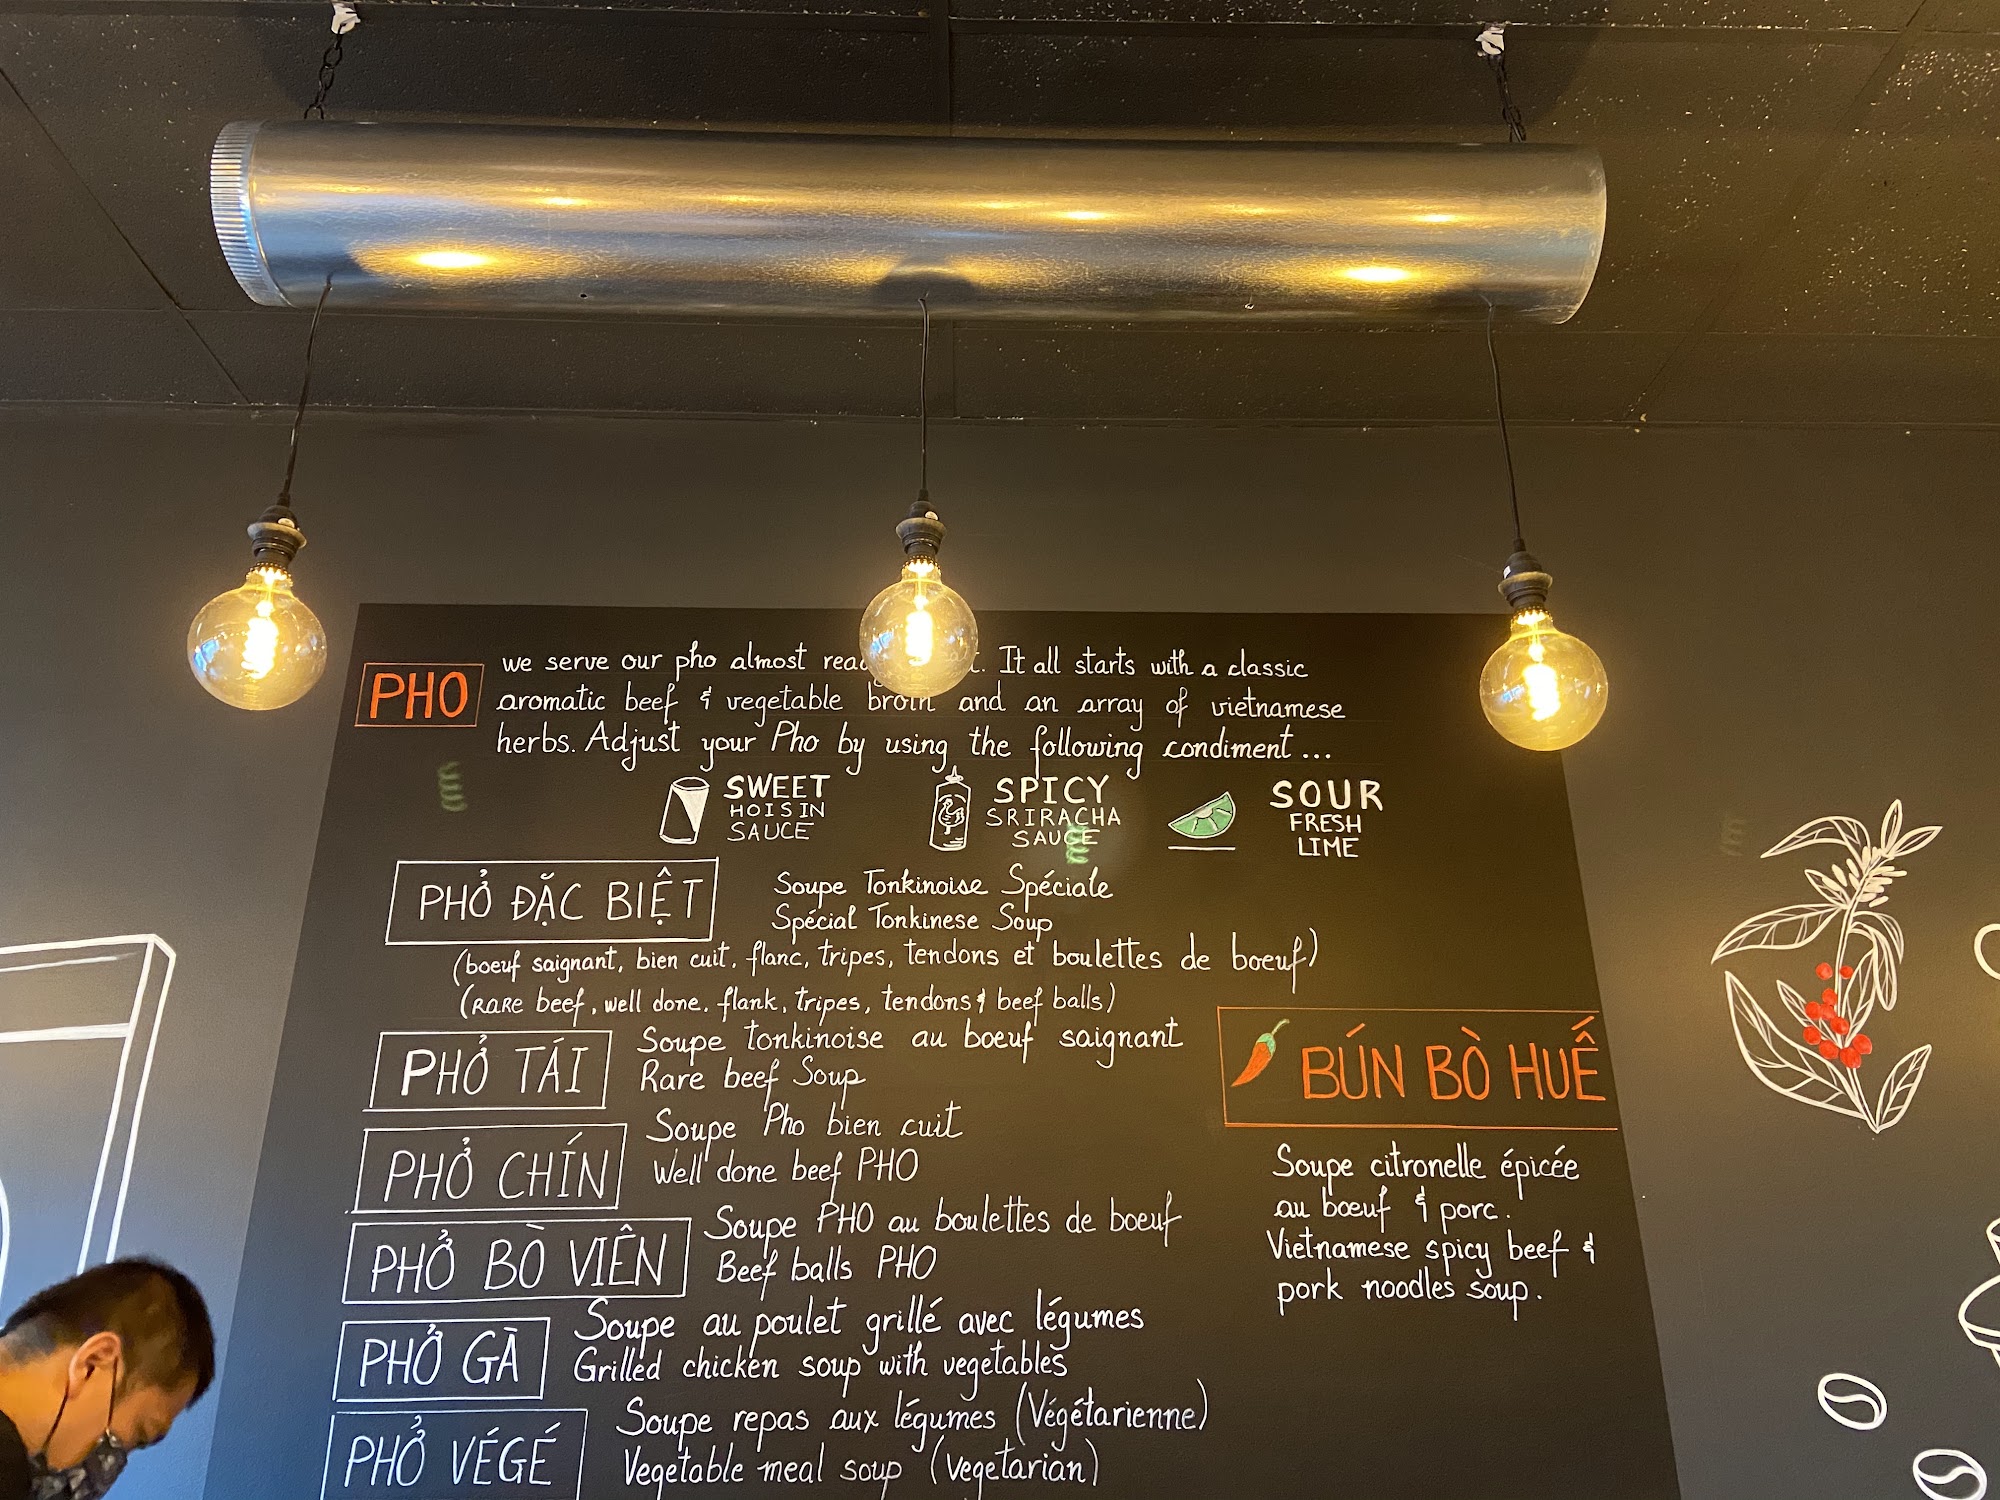 PHO
we serve our pho almost It all starts with a classic
aromatic beef & vegetable broth and an array of vietnamese
herbs. Adjust your Pho by using the following condiment...
SWEET
HOISIN
SAUCE
SPICY
SRIRACHA
SAUCE
SOUR
FRESH
LIME
PHỞ ĐẶC BIỆT
Soupe Tonkinoise Spéciale
Spécial Tonkinese Soup
(boeuf saignant, bien cuit, flanc, tripes, tendons et boulettes de boeuf)
(RARE beef, well done, flank, tripes, tendons & beef balls)
PHỞ TÁI
Soupe tonkinoise au boeuf saignant
Rare beef Soup
PHỞ CHÍN
Soupe Pho bien cuit
Well done beef PHO
PHỞ BÒ VIÊN
Soupe PHO au boulettes de boeuf
Beef balls PHO
PHỞ GÀ
Soupe au poulet grillé avec légumes
Grilled chicken soup with vegetables
PHỞ VÉGÉ
Soupe repas aux légumes (Végétarienne)
Vegetable meal soup (vegetarian)
BÚN BÒ HUẾ
Soupe citronelle épicée
au boeuf & porc.
Vietnamese spicy beef &
pork noodles soup.